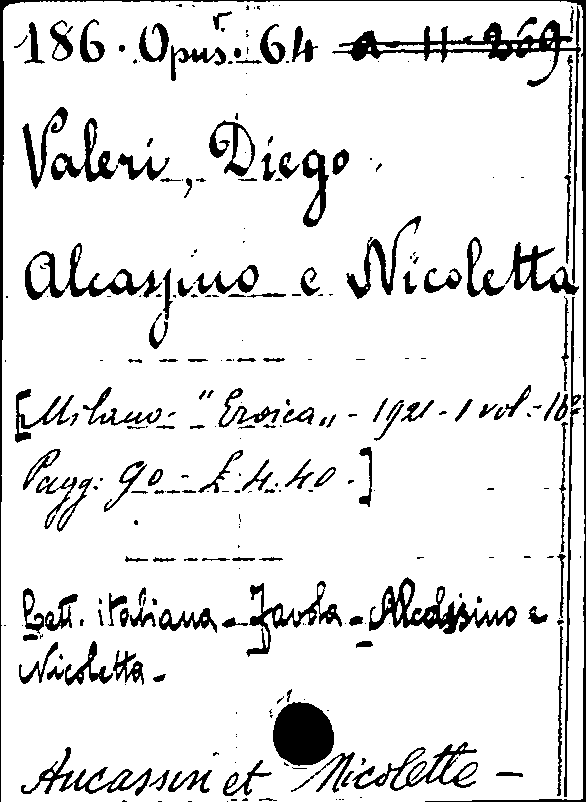 186. Opus. 64 a-11-269
Valeri, Diego.
Alcassino e Nicoletta
[Milano. "Eroica„ - 1921 - 1 vol. - 16º
Pagg: 90 - £ 4.40 -]
Lett. italiana - Favola - Alcassino e
Nicoletta -
Aucassin et Nicolette -